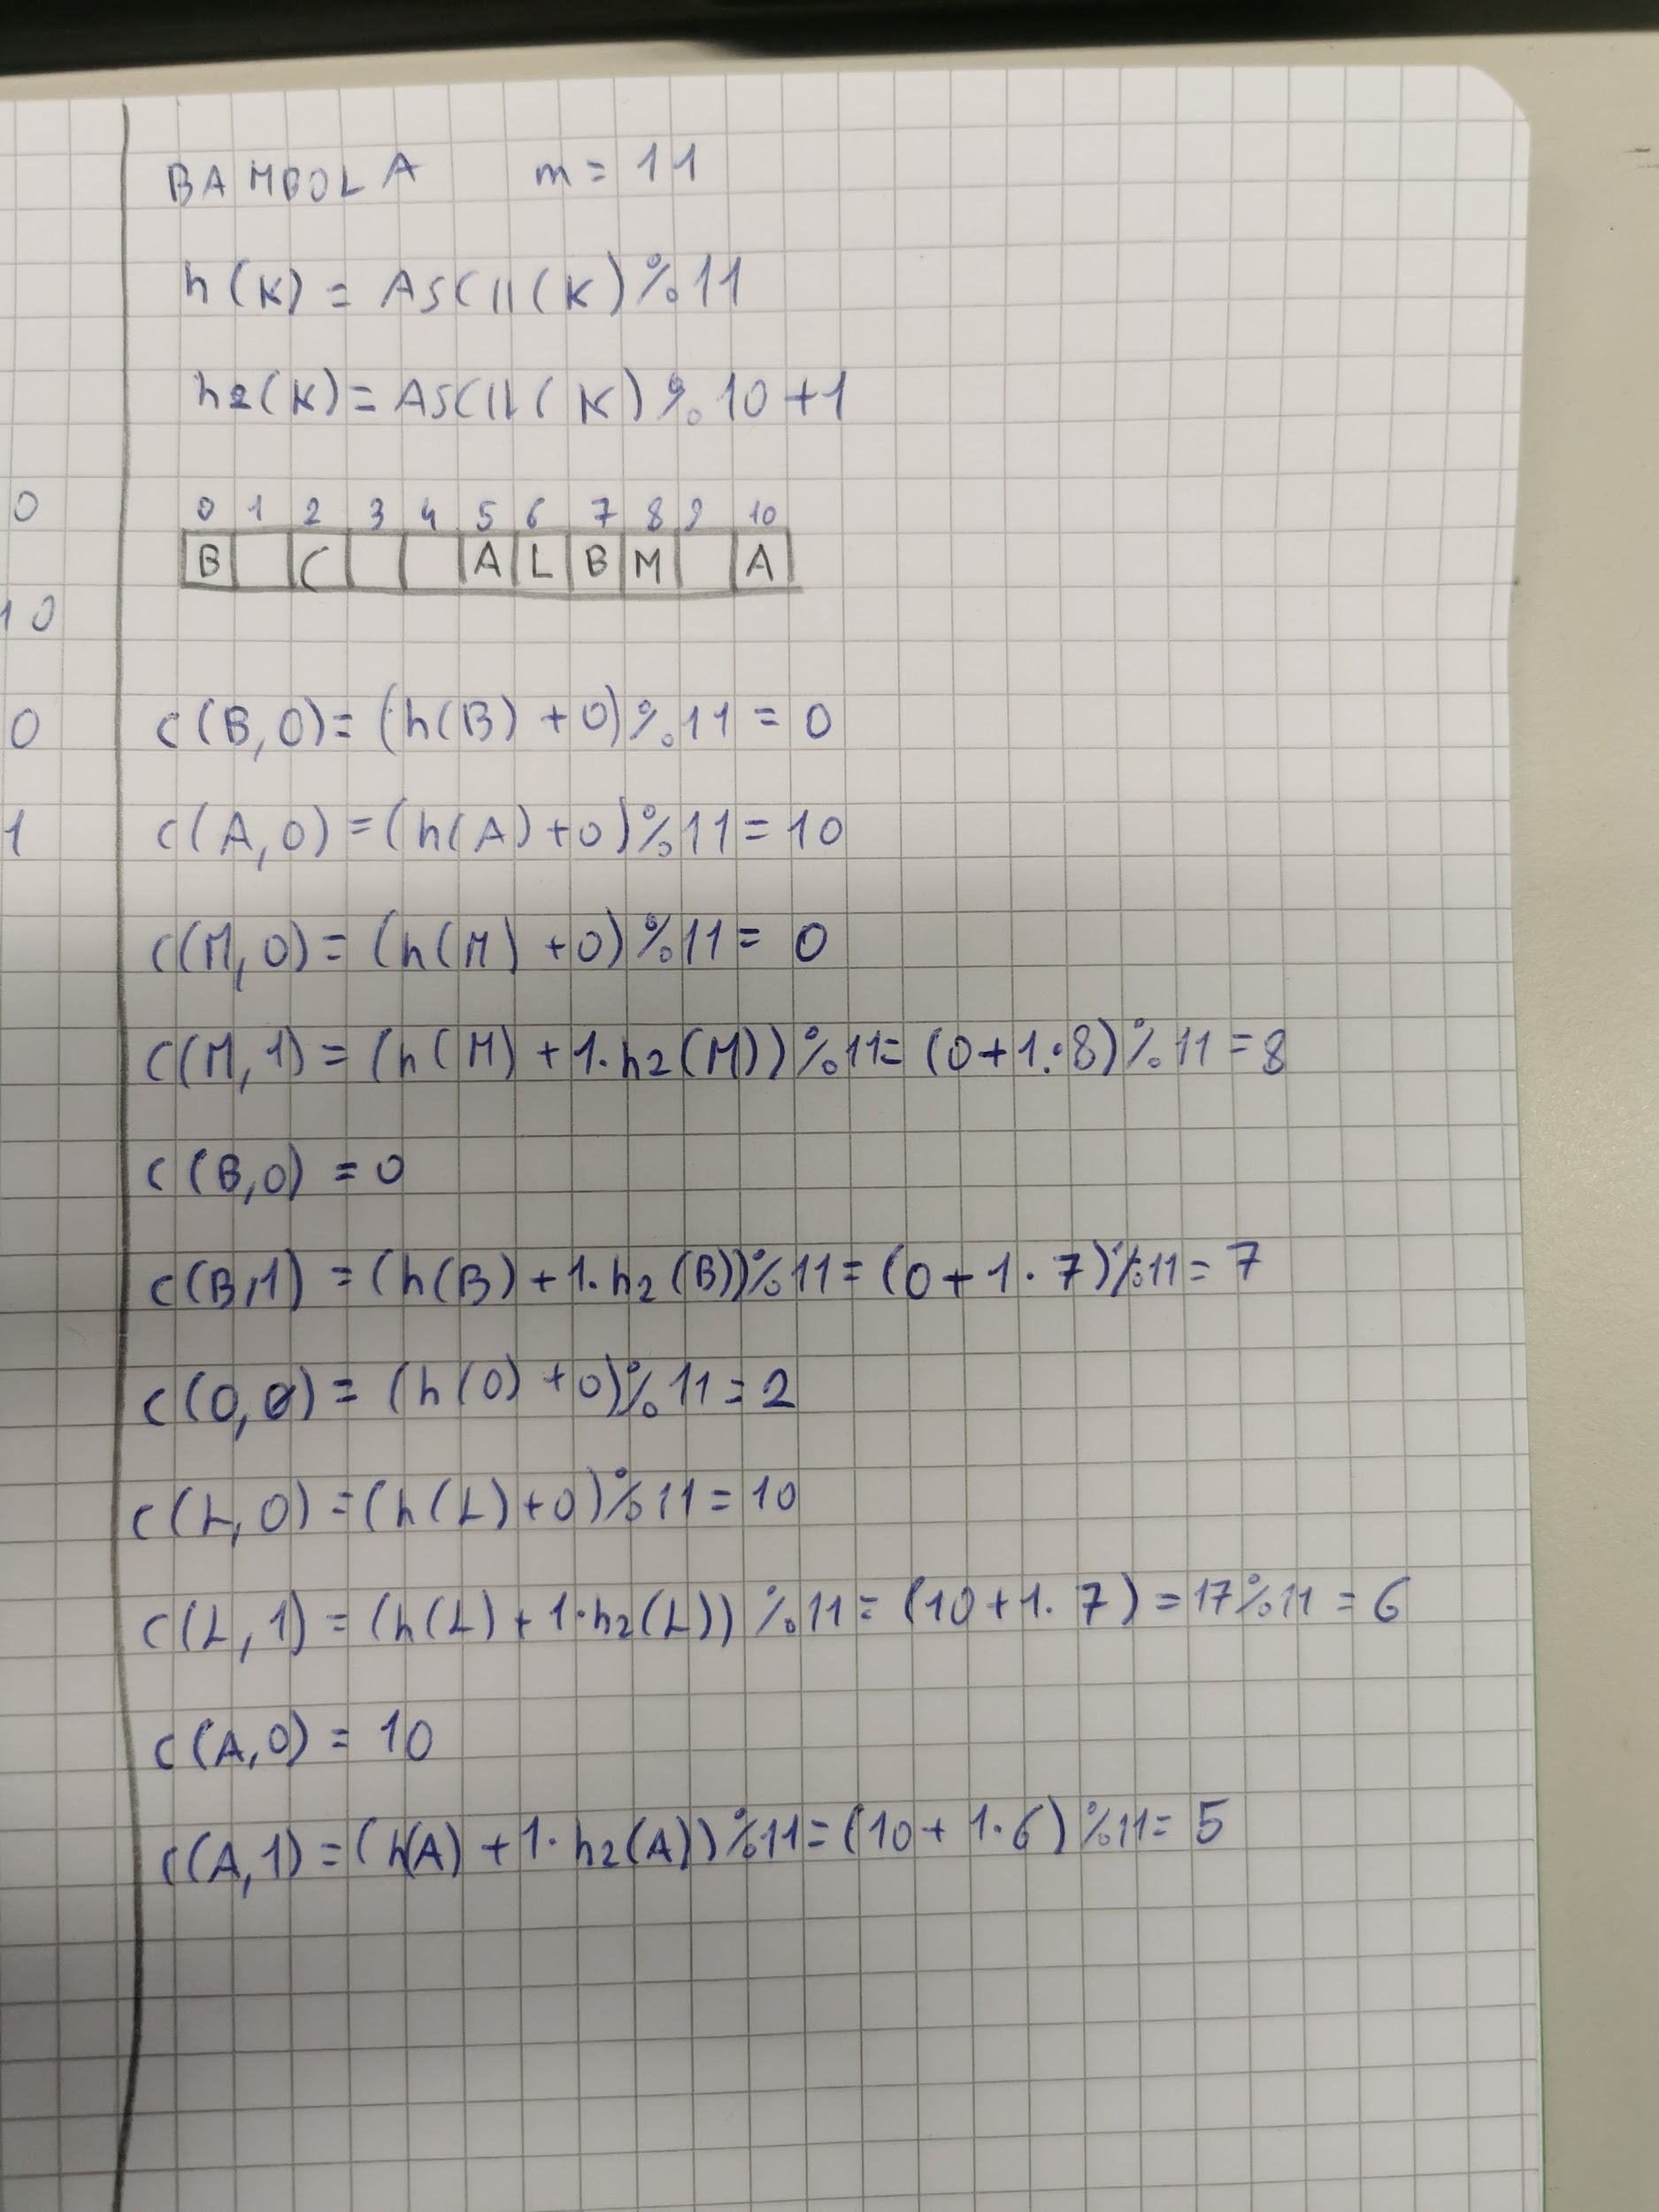 BAMBOLA m = 11
h(K) = ASCII(K)%11
h2(K) = ASCII(K)%10+1
0 1 2 3 4 5 6 7 8 9 10
B C A L B M A
0
10
0
1
c(B,0) = (h(B) + 0)%11 = 0
c(A,0) = (h(A)+0)%11 = 10
c(M,0) = (h(M) + 0)%11 = 0
c(M,1) = (h(M) + 1·h2(M))%11 = (0+1·8)%11 = 8
c(B,0) = 0
c(B,1) = (h(B) + 1·h2(B))%11 = (0+1·7)%11 = 7
c(O,0) = (h(O) + 0)%11 = 2
c(L,0) = (h(L)+0)%11 = 10
c(L,1) = (h(L) + 1·h2(L)) %11 = (10+1·7) = 17%11 = 6
c(A,0) = 10
c(A,1) = (h(A) + 1·h2(A))%11 = (10+1·6)%11 = 5